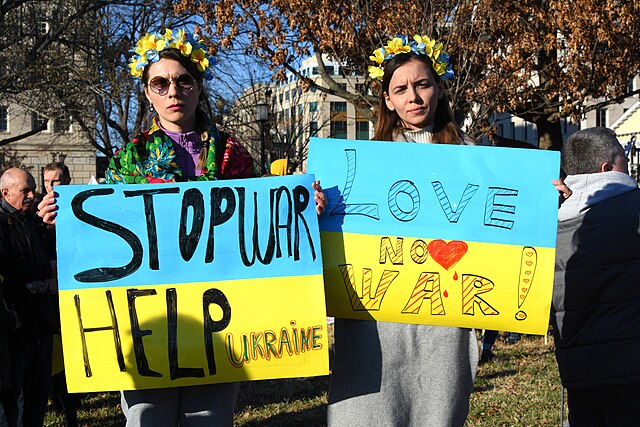 STOP WAR
HELP UKRAINE
LOVE
NO
WAR!